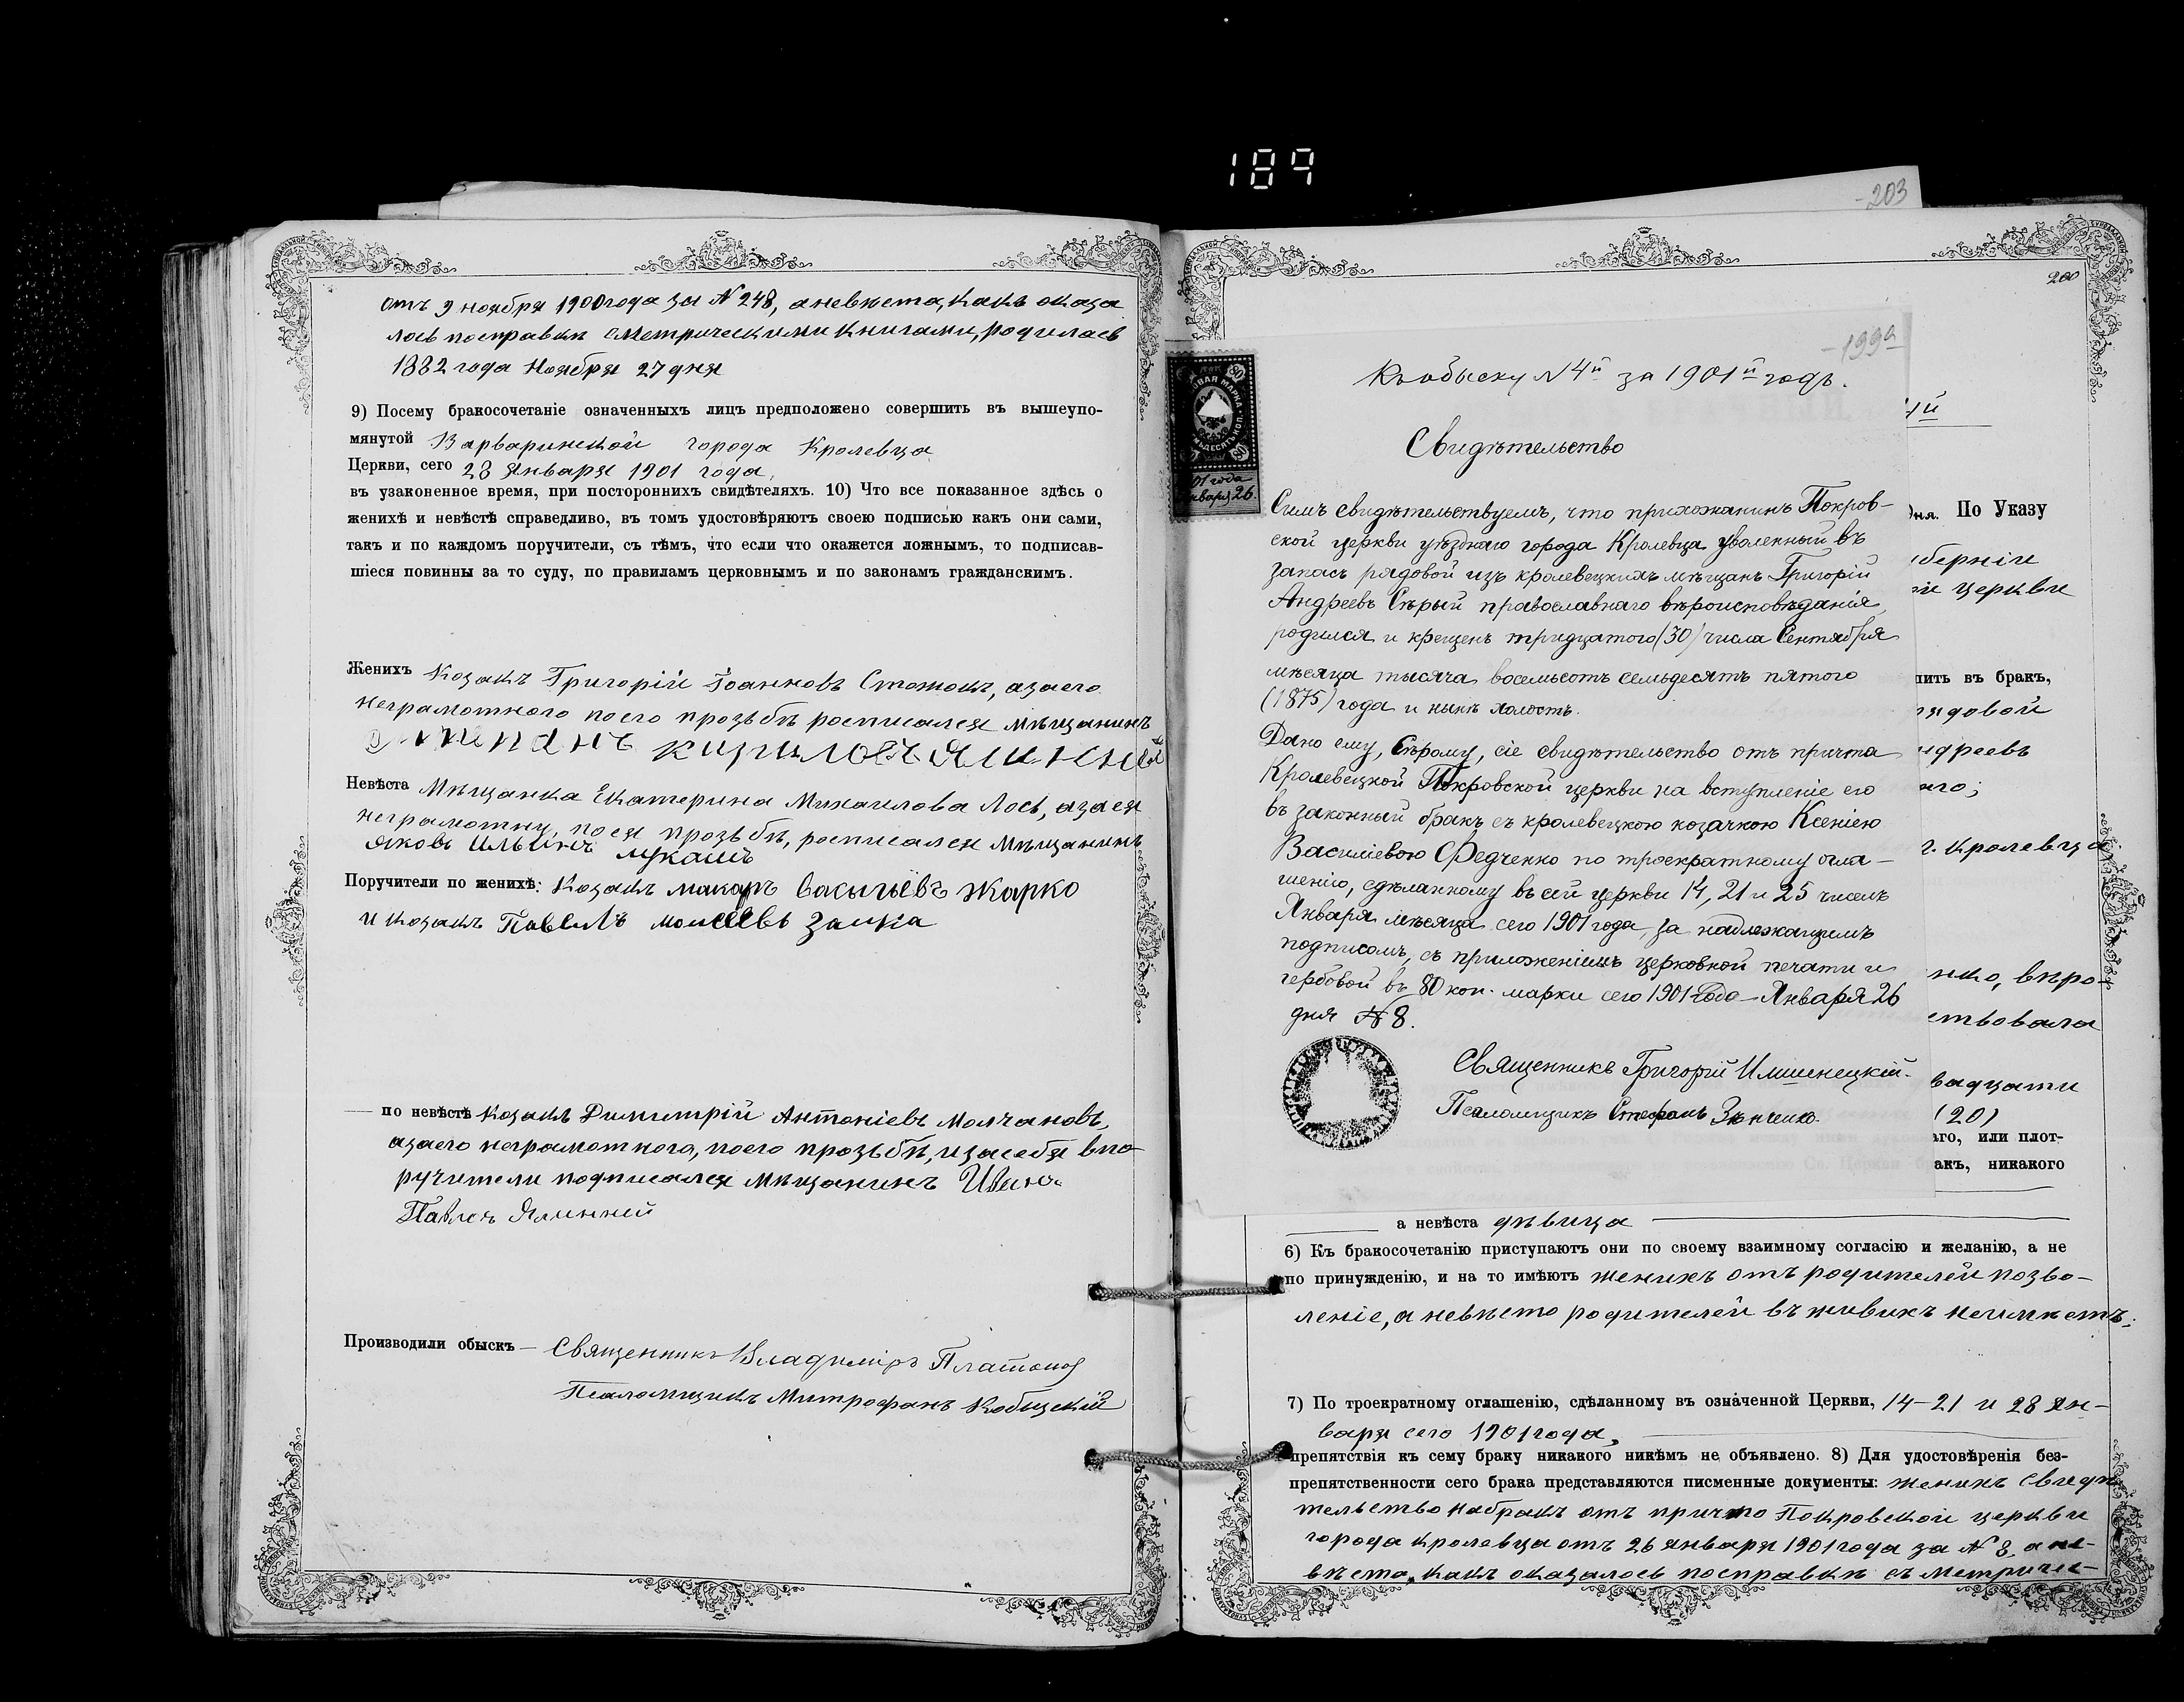 189
203
отъ 9 ноября 1900 года за № 248, а невѣста, какъ оказа
лось по справкѣ с метрическими книгами, родилась
1882 года Ноября 27 дня
9) Посему бракосочетаніе означенныхъ лицъ предположено совершить въ вышеупо-
мянутой Варваринской города Кролевца
Церкви, сего 28 Января 1901 года,
въ узаконенное время, при постороннихъ свидѣтеляхъ. 10) Что все показанное здѣсь о
женихѣ и невѣстѣ справедливо, въ томъ удостовѣряютъ своею подписью какъ они сами,
такъ и по каждомъ поручители, съ тѣмъ, что если что окажется ложнымъ, то подписав-
шіеся повинны за то суду, по правиламъ церковнымъ и по законамъ гражданскимъ.
Женихъ Козакъ Григорій Іоанновъ, а за его
неграмотного по его прозьбѣ росписался мѣщанинъ
Невѣста Мѣщанка Екатерина Михаилова Лось, а за ея
неграмотну, по ея прозьбѣ, росписался мѣщанинъ
яковъ ильинъ лукашъ
Поручители по женихѣ: Козакъ макаръ васильевъ жарко
и козакъ Павелъ моисеевъ заика
— по невѣстѣ козакъ Димитрій Антоніевъ Молчановъ,
а за его неграмотного, по его прозьбѣ, и за себя впо
ручители подписался мѣщанинъ Иванъ
Павловъ Ялинный
Производили обыскъ — Священникъ Владиміръ Платоновъ
Псаломщикъ Митрофанъ Кобыцкій
200
199а
Къ обыску № 4й за 1901й годъ.
Свидѣтельство
01 года
Января 26.
Симъ свидѣтельствуемъ, что прихожанинъ Покров-
ской церкви уѣзднаго города Кролевца уволенный въ
запасъ рядовой изъ кролевецкихъ мѣщанъ Григорій
Андреевъ Сѣрый православнаго вѣроисповѣданія,
родился и крещенъ тридцатого (30) числа Сентября
мѣсяца тысяча восемьсотъ семьдесятъ пятого
(1875) года и нынѣ холостъ.
Дано ему, Сѣрому, сіе свидѣтельство отъ причта
Кролевецкой Покровской церкви на вступленіе его
въ законный бракъ съ кролевецкою козачкою Ксеніею
Василіевою Федченко по троекратному огла-
шенію, сдѣланному въ сей церкви 14, 21 и 25 чиселъ
Января мѣсяца сего 1901 года, за надлежащимъ
подписомъ, съ приложеніемъ церковной печати и
гербовой въ 80 коп. марки сего 1901 года Января 26
дня № 8.
Священникъ Григорій
Псаломщикъ Стефанъ
ый
дня. По Указу
берніи
церкви
пить въ бракъ,
рядовой
ндреевъ
аго;
г. Кролевца
нко, вѣро-
ствовала
вадцати
(20)
аго, или плот-
акъ, никакого
а невѣста дѣвица
6) Къ бракосочетанію приступаютъ они по своему взаимному согласію и желанію, а не
по принужденію, и на то имѣютъ женихъ отъ родителей позво-
леніе, а невѣста родителей въ живыхъ не имѣетъ;
7) По троекратному оглашенію, сдѣланному въ означенной Церкви, 14-21 и 28 Ян-
варя сего 1901 года,
препятствія къ сему браку никакого никѣмъ не объявлено. 8) Для удостовѣренія без-
препятственности сего брака представляются писменные документы: женихъ свидѣ
тельство на бракъ отъ причта Покровской церкви
города кролевца отъ 26 января 1901 года за № 8, а не-
вѣста, какъ оказалось по справкѣ съ метричес-